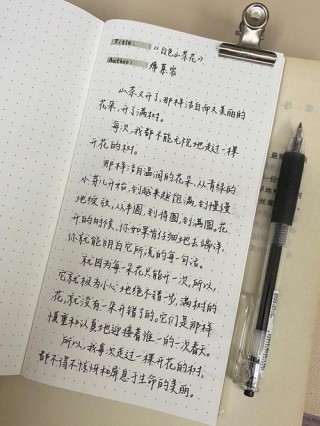 Title:
《白色山茶花》
Author:
席慕容
山茶又开了,那样洁白而又美丽的
花朵,开了满树。
每次,我都不能无视地走过一棵
开花的树。
那样洁白温润的花朵,从青绿的
小芽儿开始,到越来越饱满,到慢慢
地绽放,从半圆,到将圆,到满圆。花
开的时候,你如果肯仔细地去端详,
你就能明白它所说的每一句话。
就因为每一朵花只能开一次,所以,
它就极为小心地绝不错一步,满树的
花,就没有一朵开错了的。它们是那样
慎重和认真地迎接着唯一的一次春天。
所以,我每次走过一棵开花的树,
都不得不惊讶和屏息于生命的美丽。